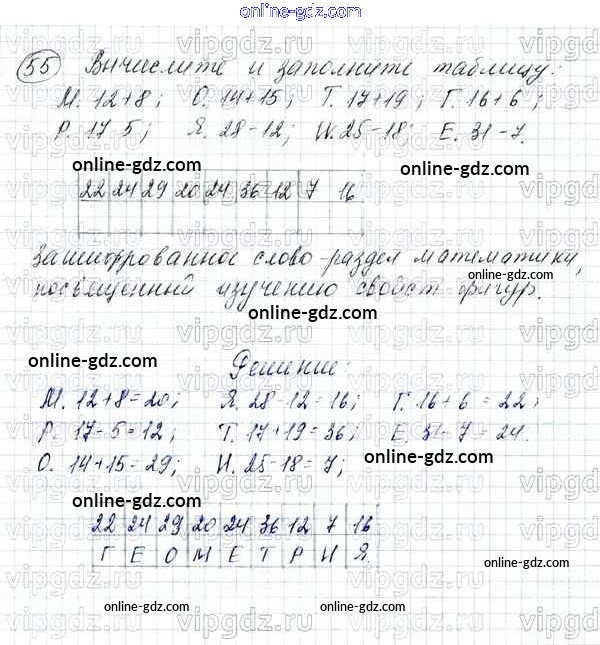 online-gdz.com
55 Вычислите и заполните таблицу:
М. 12+8; О. 14+15; Т. 17+19; Г. 16+6;
Р. 17-5; Я. 28-12; И. 25-18; Е. 31-7.
online-gdz.com online-gdz.com
22 24 29 20 24 36 12 7 16
online-gdz.com
Зашифрованное слово-раздел математики,
online-gdz.com
посвященный изучению свойст фигур.
online-gdz.com online-gdz.com
Решение:
М. 12+8=20; Я. 28-12=16; Г. 16+6=22;
Р. 17-5=12; Т. 17+19=36; Е. 31-7=24.
О. 14+15=29; И. 25-18=7;
online-gdz.com
online-gdz.com online-gdz.com
22 24 29 20 24 36 12 7 16
Г Е О М Е Т Р И Я
online-gdz.com
online-gdz.com online-gdz.com
online-gdz.com